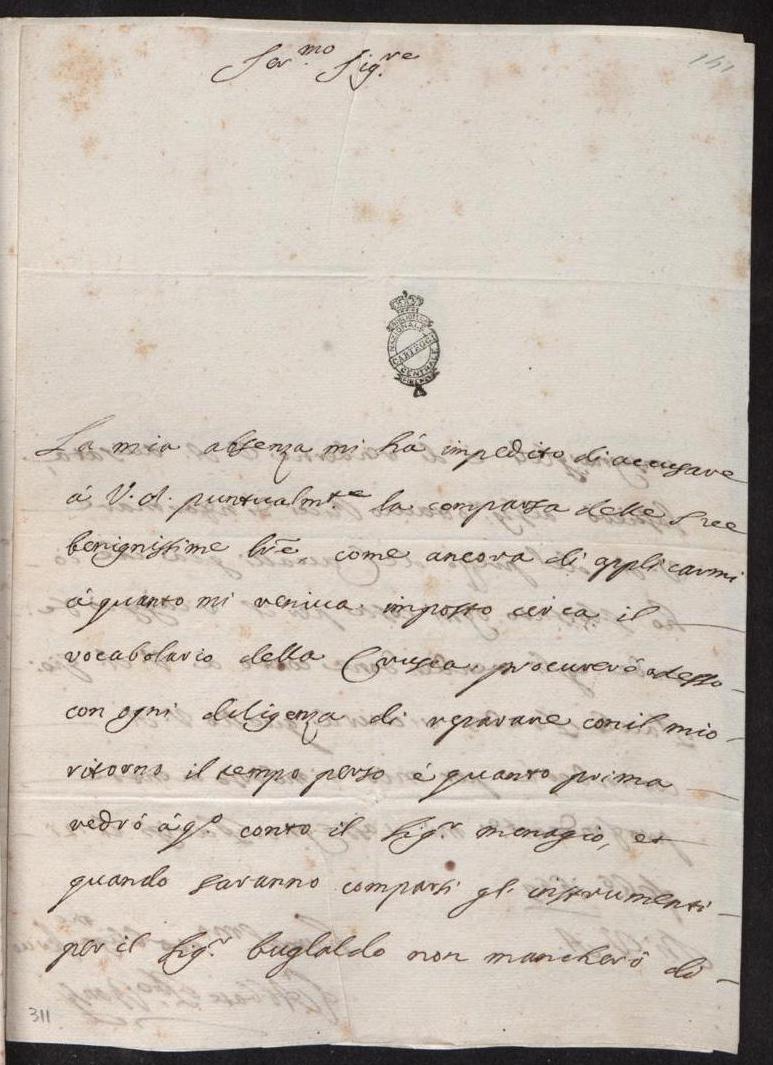 Ser.mo Sig.re
141
BIBLIOTECA
NAZIONALE
CARTEGGI
CENTRALE
FIRENZE
La mia absenza mi há impedito di accusare
á V. A. puntualm.te la comparsa delle sue
benignissime lre come ancora di applicarmi
á quanto mi veniva imposto circa il
vocabolario della Crusca, procureró adesso
con ogni diligenza di reparare con il mio
ritorno il tempo perso é quanto prima
vedró á q.o conto il Sig.r menagio, et
quando saranno comparsi gl'instrumenti
per il Sig.r bugialdo non mancheró di
311